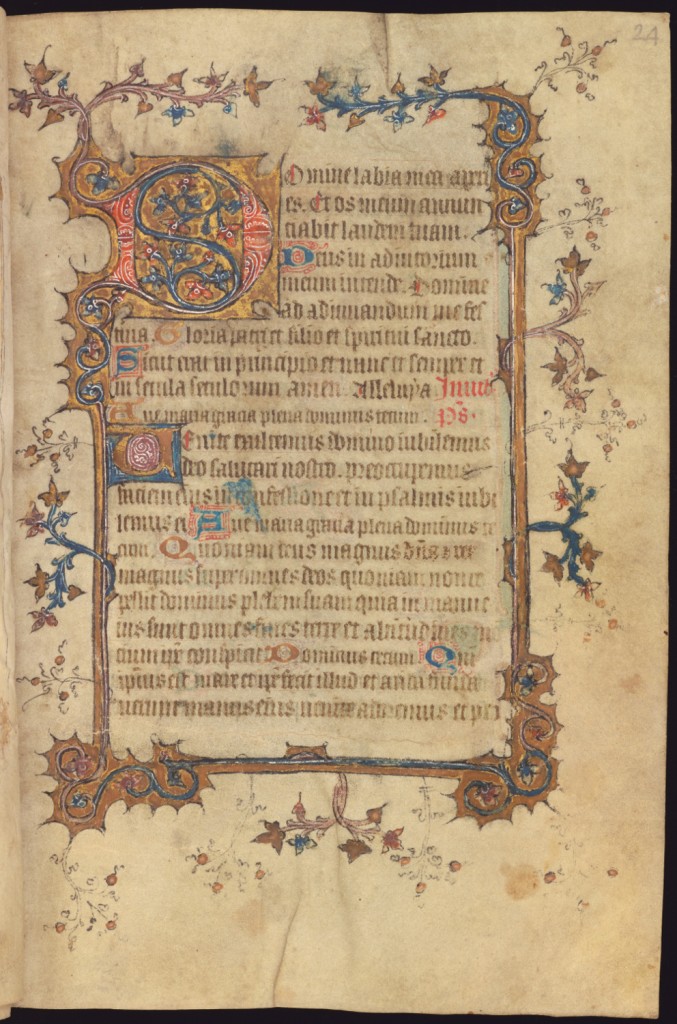 24
Domine labia mea aperi
es. Et os meum annun
ciabit laudem tuam.
Deus in adiutorium
meum intende. Domine
ad adiuuandum me fes
tina. Gloria patri et filio et spiritui sancto.
Sicut erat in principio et nunc et semper et
in secula seculorum amen. Alleluya Inuit
Aue maria gracia plena dominus tecum. ps.
Uenite exultemus domino iubilemus
deo salutari nostro. preoccupemus
faciem eius in confessione et in psalmis iubi
lemus ei Aue maria gracia plena dominus te
cum. Quoniam deus magnus dns
magnus super omnes deos quoniam non re
pellit dominus plebem suam quia in manu e
ius sunt omnes fines terre et altitudines
cium ipse conspicit Dominus tecum Qm
ipsius est mare et ipse fecit illud et aridam funda
uerunt manus eius uenite adoremus et pci